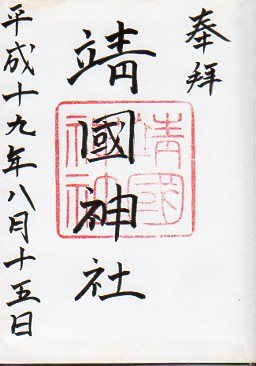 奉拝
靖國神社
靖國神社
平成十九年八月十五日